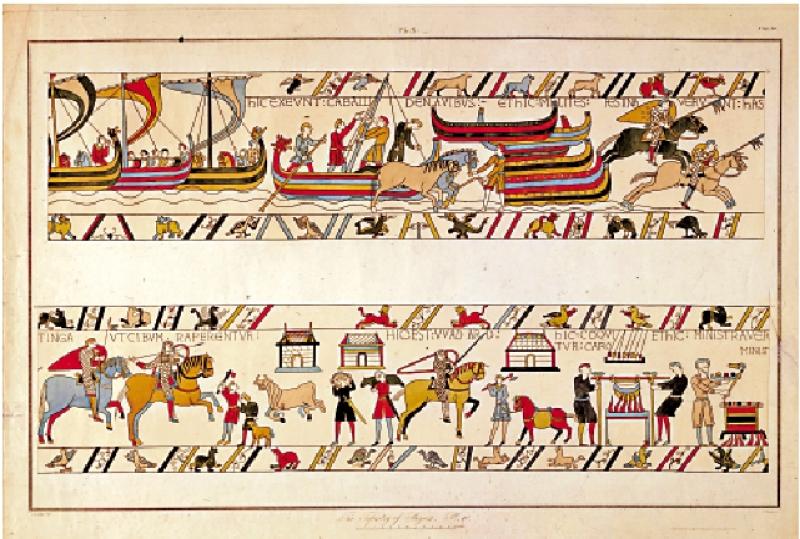 HIC EXEVNT: CABALLI DENAVIBUS:- ETHIC: MILITES: FESTINAVERVNT: HAS
TINGA VTCIBVM: RAPERENTVR:
HICEST: VVADARD:
HIC: COQV ETHIC: MINISTRAVER
TVR: CARO
MINIS